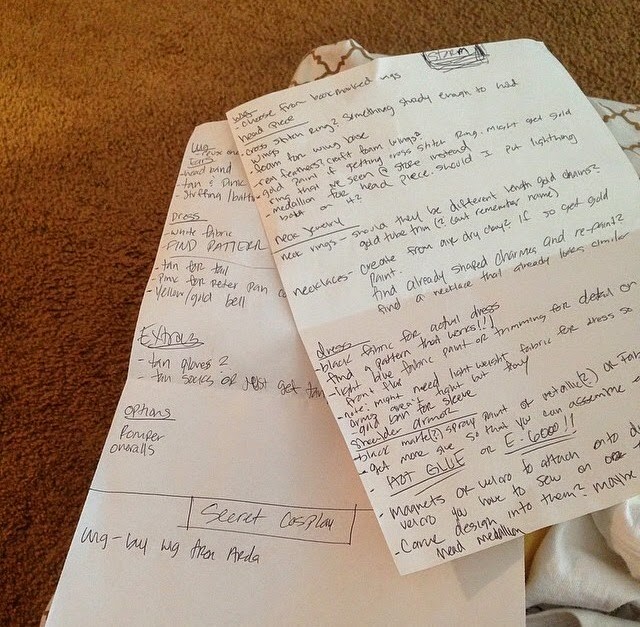 STORM
- choose from bookmarked wigs
head piece
- cross stitch ring? something sturdy enough to hold
wings
- foam for wing base
- real feathers? craft foam wings?
- gold paint if getting cross stitch ring. might get gold
ring that we seen @ store instead
- medallion for head piece. should I put lightning
bolt on it?
neck jewelry
neck rings - should they be different length gold chains?
gold tube trim (? cant remember name)
necklaces - create from air dry clay? if so get gold
paint.
find already shaped charms and re-paint?
find a necklace that already looks similar
dress
- black fabric for actual dress
- find a pattern that works!!!
- light blue fabric paint or trimming for detail on
front flap
- note: might need light weight fabric for dress so
arms aren't tight but flowy
- gold for sleeve
shoulder armor
- black matte(?) spray paint or metallic(?) or
- get more so that you can assemble
- HOT GLUE or E-6000!!
- magnets or velcro to attach onto
velcro you have to sew on
- Carve design into them? maybe
head medallion
Wig
Ears
- head band
- tan & pink
- stuffing/
Dress
- white fabric
- FIND PATTERN
- tan for tail
- pink for peter pan
- yellow/gold bell
Extras
- tan gloves?
- tan socks or just get tan
options
Romper
overalls
Secret Cosplay
wig - buy wig from Arda